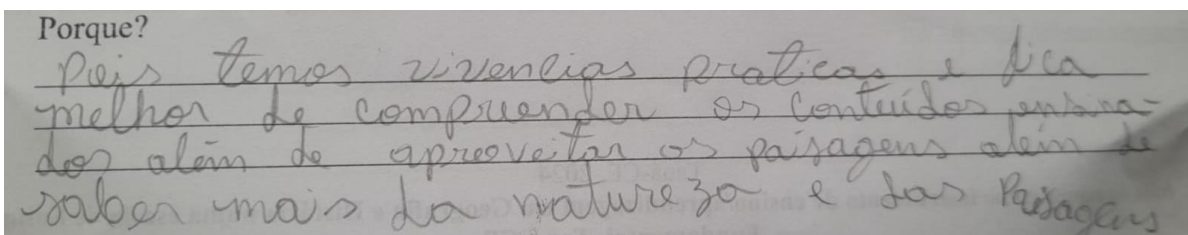 Porque?
Pois temos vivencias praticas e fica
melhor de compreender os conteúdos ensina-
dos além de aproveitar as paisagens além de
saber mais da natureza e das Paisagens